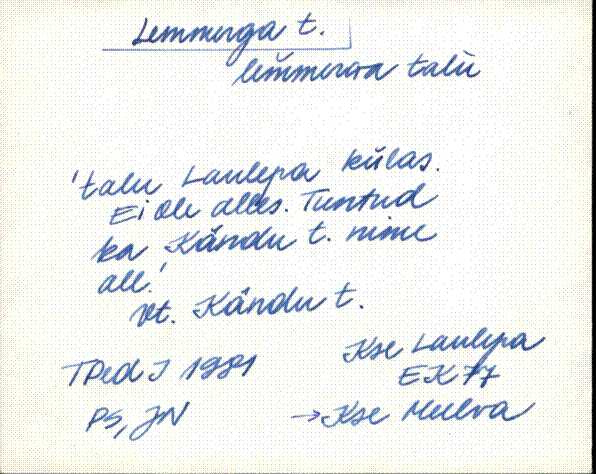 Lemmerga t.
lem̆merGa talù
'talu Laulepa külas.
Ei ole alles. Tuntud
ka Kändu t. nime
all.'
Vt. Kändu t.
TPedI 1981
Kse Laulepa
EK 77
PS, JN
→ Kse Meelva